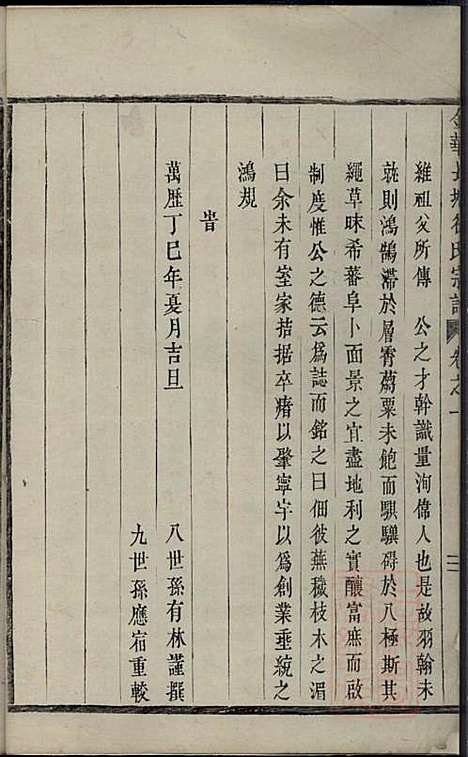 金華長城徐氏宗譜 卷之一 三
維祖父所傳 公之才幹識量洵偉人也是故羽翰未
就則鴻鵠滯於層霄蒭粟未飽而騏驥碍於八極斯其
繩草昧希蕃阜卜面景之宜盡地利之實釀富庶而啟
制度惟公之德云為誌而銘之曰佃彼蕪穢枝木之湄
曰余未有室家拮据卒瘏以肇寧宇以為創業垂統之
鴻規
旹
萬歷丁巳年夏月吉旦
八世孫有林謹撰
九世孫應宿重較